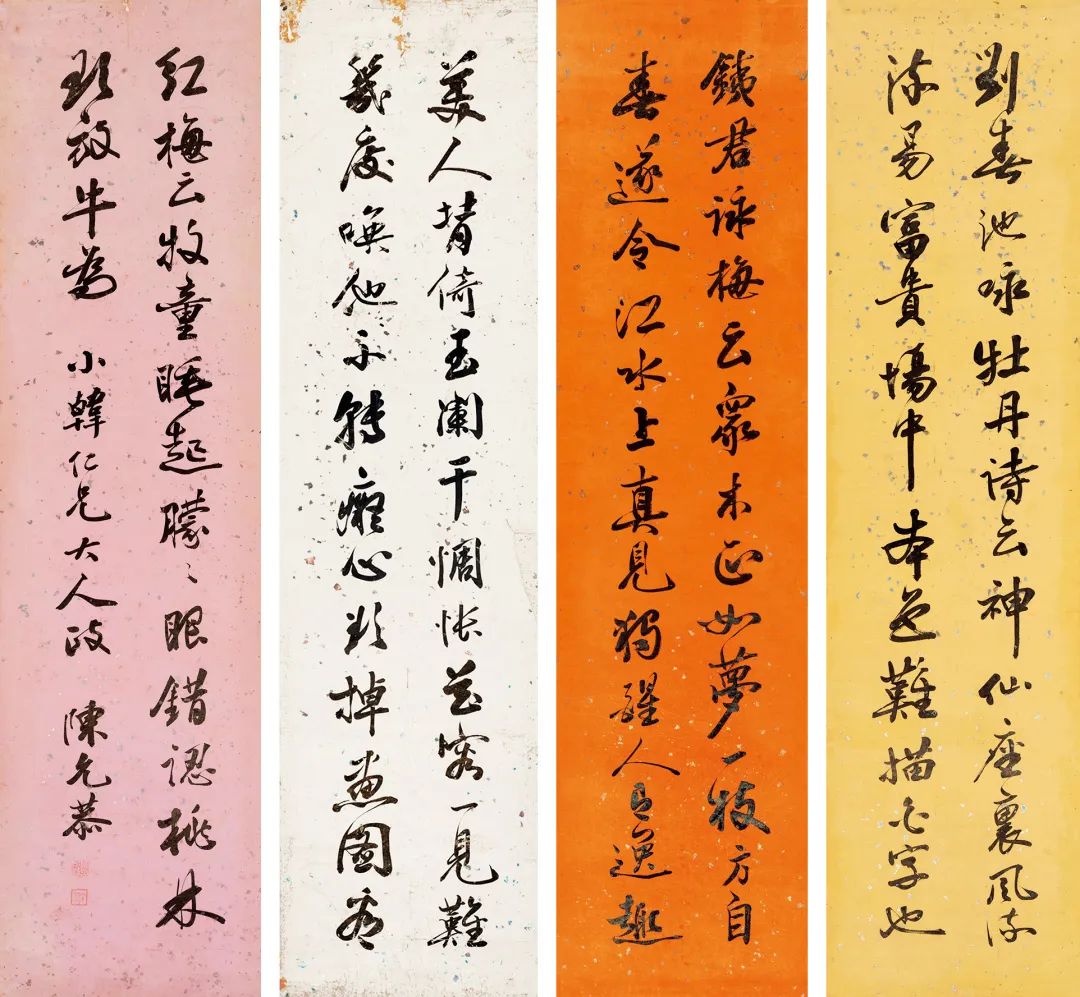 劉春池咏牡丹诗云神仙座裏風流
流易富貴場中本色難描字也
銕君詠梅云衆木正如夢一枝方自
春遂令江水上真見獨醒人有逸趣
美人背倚玉闌干惆悵花容一見難
幾度喚他不轉癡心欲掉畫圖看
紅梅云牧童睡起朦〻眼錯認桃林
欲放牛為 小韓仁兄大人政 陳允恭